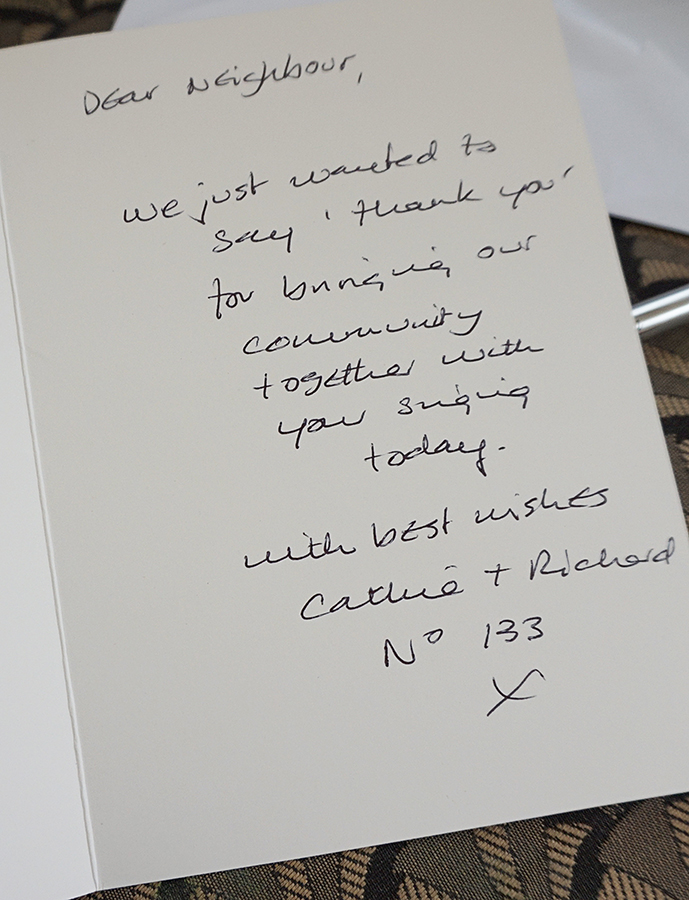 Dear Neighbour,
we just wanted to
say 'thank you'
for bringing our
community
together with
your singing
today.
with best wishes
Cathie + Richard
Nº 133
X